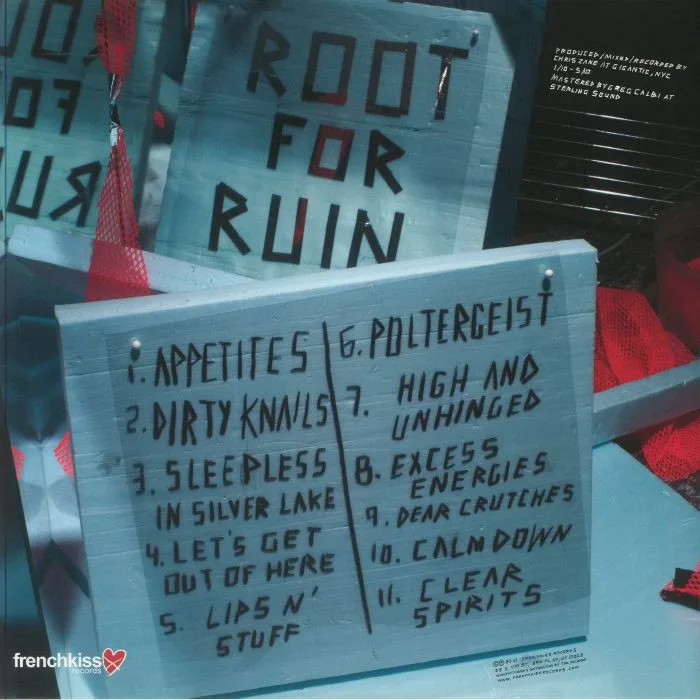 ROOT
FOR
RUIN
PRODUCED/MIXED/RECORDED BY
CHRIS ZANE AT GIGANTIC, NYC
1/10 - 5/10
MASTERED BY GREG CALBI AT
STERLING SOUND
1. APPETITES
2. DIRTY KNAILS
3. SLEEPLESS
IN SILVER LAKE
4. LET'S GET
OUT OF HERE
5. LIPS N'
STUFF
6. POLTERGEIST
7. HIGH AND
UNHINGED
8. EXCESS
ENERGIES
9. DEAR CRUTCHES
10. CALM DOWN
11. CLEAR
SPIRITS
frenchkiss
records
FRENCHKISS RECORDS
WWW.FRENCHKISSRECORDS.COM